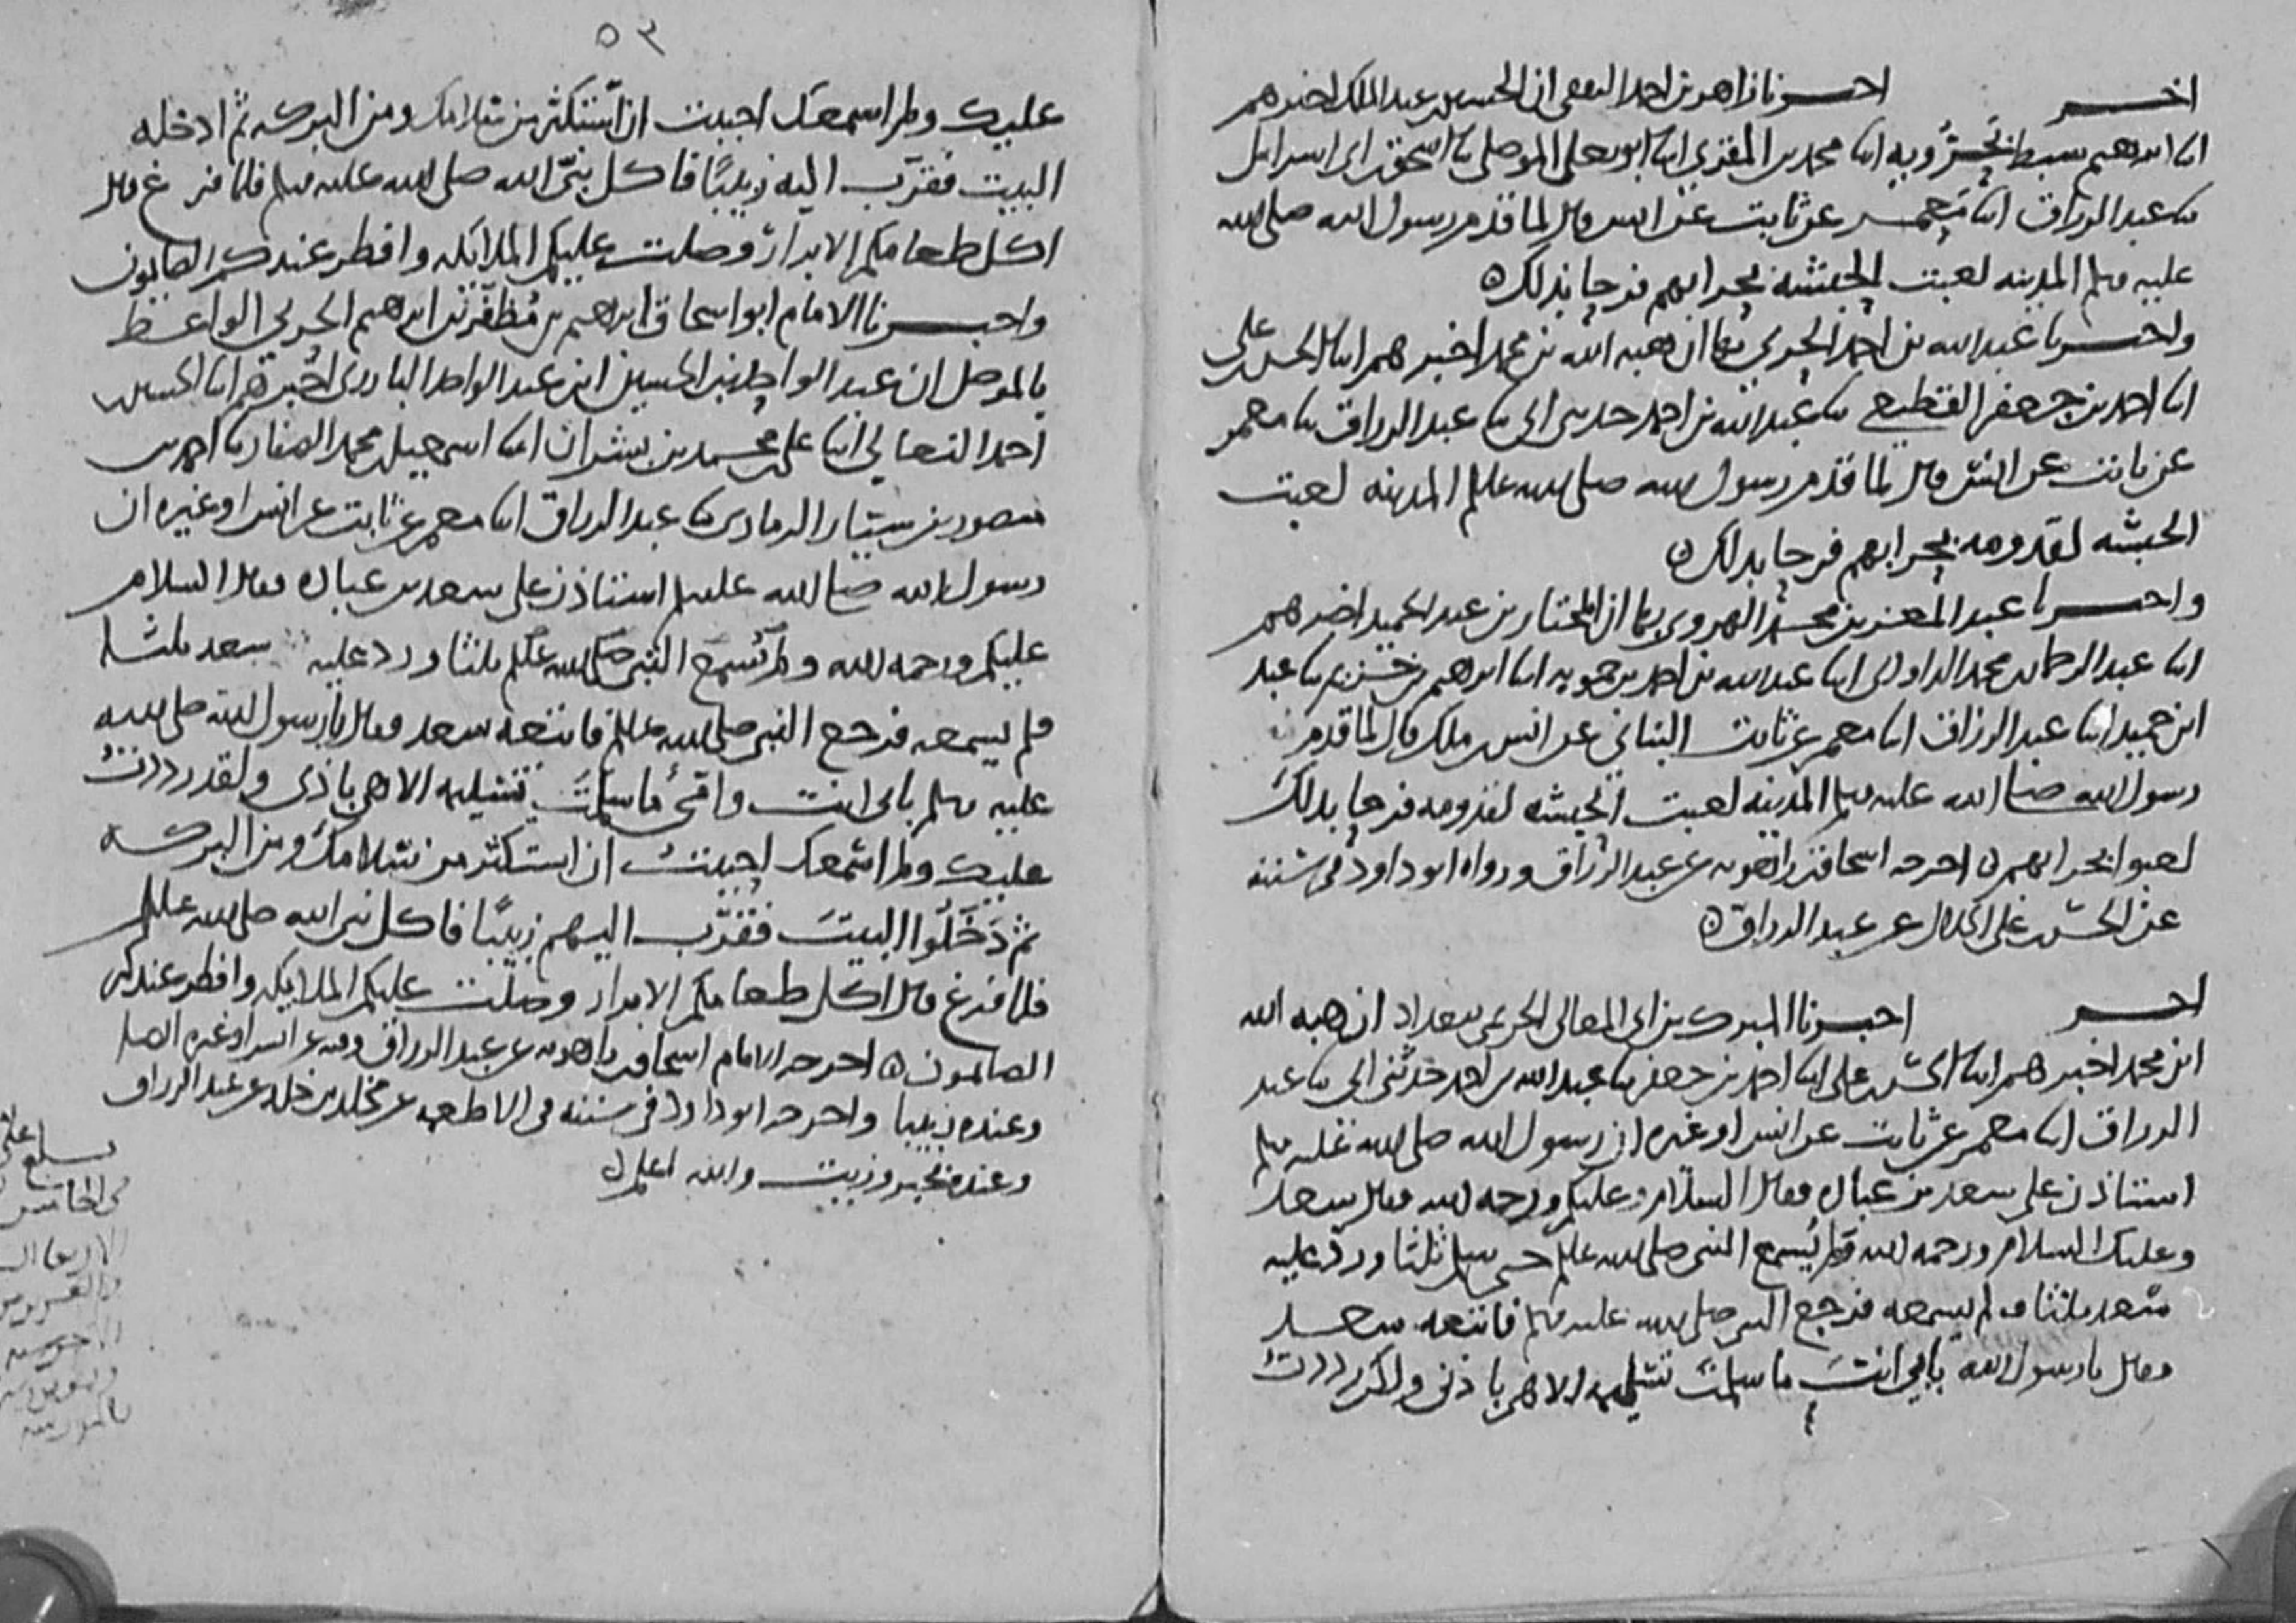 اخــر احبرنا زاهر بن احمد الثقفي ان الحسين بن عبد الملك اخبرهم
ابنا ابرهيم سبط بحرويه ابنا محمد بن المقري ابنا ابو يعلى الموصلي ثنا اسحق بن ابي اسرايل
ثنا عبد الرزاق ابنا معمر عن ثابت عن انس قال لما قدم رسول الله صلى الله
عليه وسلم المدينه لعبت الحبشه بحرابهم فرحا بذلك
واخبرنا عبد الله بن احمد الحربي بها ان هبه الله بن محمد اخبرهم ابنا الحسن بن علي
ابنا احمد بن جعفر القطيعي ثنا عبد الله بن احمد حدثني ابي ثنا عبد الرزاق ثنا معمر
عن ثابت عن انس قال لما قدم رسول الله صلى الله عليه وسلم المدينه لعبت
الحبشه لقدومه بحرابهم فرحا بذلك
واخبرنا عبد المعز بن محمد الهروي بها ان المختار بن عبد الحميد اخبرهم
ابنا عبد الرحمان بن محمد الداودي ابنا عبد الله بن احمد بن حمويه ابنا ابرهيم بن خزيم ثنا عبد
ابن حميد ابنا عبد الرزاق ابنا معمر عن ثابت البناني عن انس بن ملك قال لما قدم
رسول الله صلى الله عليه وسلم المدينه لعبت الحبشه لقدومه فرحا بذلك
لعبوا بحرابهم اخرجه اسحاق بن راهويه عن عبد الرزاق ورواه ابو داود في سننه
عن الحسن بن علي الخلال عن عبد الرزاق
اخــر اخبرنا المبرك بن ابي المعالي الحريمي ببغداد ان هبه الله
ابن محمد اخبرهم ابنا الحسن بن علي ابنا احمد بن جعفر ثنا عبد الله بن احمد حدثني ابي ثنا عبد
الرزاق ابنا معمر عن ثابت عن انس او غيره ان رسول الله صلى الله عليه وسلم
استاذن على سعد بن عباده فقال السلام عليكم ورحمه الله فقال سعد
وعليك السلام ورحمه الله ولم يسمع النبي صلى الله عليه وسلم حتى سلم ثلثا ورد عليه
سعد ثلثا ولم يسمعه فرجع النبي صلى الله عليه وسلم فاتبعه سعد
فقال يا رسول الله بابي انت ما سلمت تسليمه الا هي باذني ولقد رددت
٥٣
عليك ولم اسمعك احببت ان استكثر من سلامك ومن البركه ثم ادخله
البيت فقرب اليه زبيبا فاكل نبي الله صلى الله عليه وسلم فلما فرغ قال
اكل طعامكم الابرار وصلت عليكم الملايكه وافطر عندكم الصايمون
واخبرنا الامام ابو اسحاق ابرهيم بن مظفر بن ابرهيم الحربي الواعظ
بالموصل ان عبد الواحد بن الحسين ابن عبد الواحد البارزي اخبرهم ابنا الحسين بن
احمد النعالي ابنا علي بن محمد بن بشران ابنا اسمعيل بن محمد الصفار ثنا احمد بن
منصور بن سيار الرمادي ثنا عبد الرزاق ابنا معمر عن ثابت عن انس او غيره ان
رسول الله صلى الله عليه وسلم استاذن على سعد بن عباده فقال السلام
عليكم ورحمه الله ولم يسمع النبي صلى الله عليه وسلم ثلثا ورد عليه سعد ثلثا
فلم يسمعه فرجع النبي صلى الله عليه وسلم فاتبعه سعد فقال يا رسول الله صلى الله
عليه وسلم بابي انت وامي ما سلمت تسليمه الا هي باذني ولقد رددت
عليك ولم اسمعك احببت ان استكثر من سلامك ومن البركه
ثم دخلوا البيت فقرب اليهم زبيبا فاكل نبي الله صلى الله عليه وسلم
فلما فرغ قال اكل طعامكم الابرار وصلت عليكم الملايكه وافطر عندكم
الصايمون اخرجه الامام اسحاق بن راهويه عن عبد الرزاق وفيه عن انس او غيره
وعنده زبيبا واخرجه ابو داود في سننه في الاطعمه عن مخلد بن خالد عن عبد الرزاق
وعنده بخبز وزيت والله اعلم